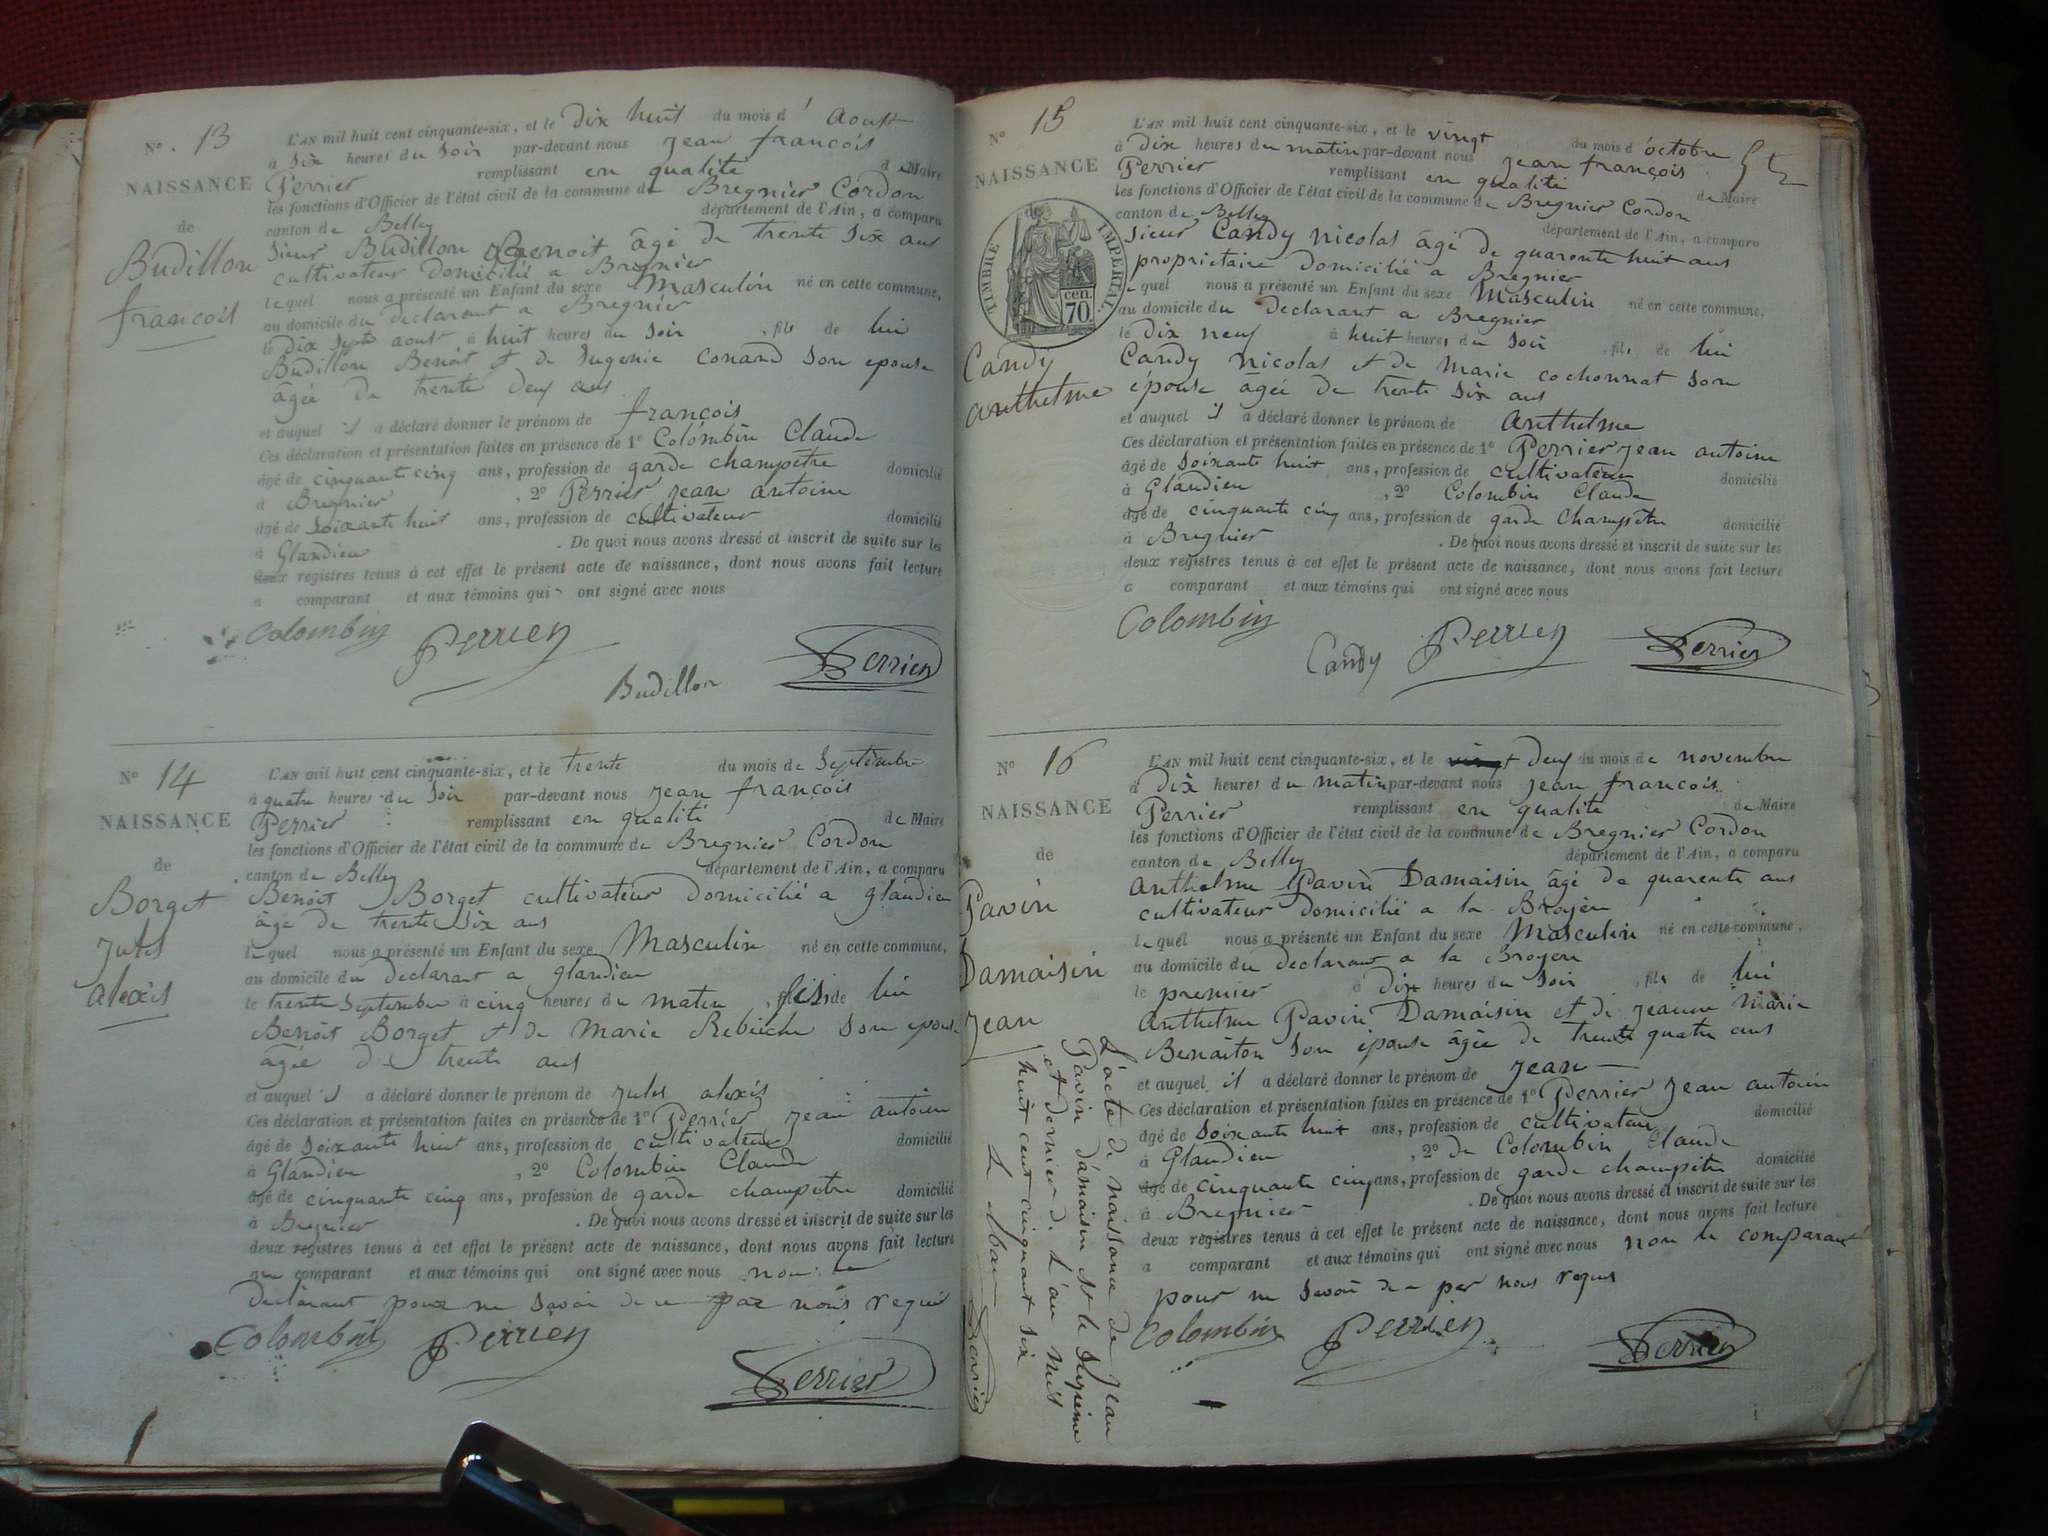 N° 13
NAISSANCE
de
Budillon
françois
L'AN mil huit cent cinquante-six, et le dix huit du mois d'aoust
à six heures du soir par-devant nous jean françois
Perrier remplissant en qualité de Maire
les fonctions d'Officier de l'état civil de la commune de Bregnier Cordon
canton de Belley département de l'Ain, a comparu
sieur Budillon Benoit âgé de trente six ans
cultivateur domicilié a Bregnier
lequel nous a présenté un Enfant du sexe Masculin né en cette commune,
au domicile du declarant a Bregnier
le dix sept aout à huit heures du soir, fils de lui
Budillon Benoit et de Eugenie Conand son epouse
âgée de trente deux ans
et auquel il a déclaré donner le prénom de françois
Ces déclaration et présentation faites en présence de 1° Colombin Claude
âgé de cinquante cinq ans, profession de garde champêtre domicilié
à Bregnier, 2° Perrier jean antoine
âgé de soixante huit ans, profession de cultivateur domicilié
à Glandieu. De quoi nous avons dressé et inscrit de suite sur les
deux registres tenus à cet effet le présent acte de naissance, dont nous avons fait lecture
a comparant et aux témoins qui ont signé avec nous
Colombin Perrier
Budillon Perrier
N° 14
NAISSANCE
de
Borget
jules
alexis
L'AN mil huit cent cinquante-six, et le trente du mois de septembre
à quatre heures du soir par-devant nous jean françois
Perrier remplissant en qualité de Maire
les fonctions d'Officier de l'état civil de la commune de Bregnier Cordon
canton de Belley département de l'Ain, a comparu
Benoit Borget cultivateur domicilié a glandieu
âgé de trente six ans
lequel nous a présenté un Enfant du sexe Masculin né en cette commune,
au domicile du declarant a glandieu
le trente septembre à cinq heures du matin, fils de lui
Benoit Borget et de Marie Rebieche son epouse
âgée de trente ans
et auquel il a déclaré donner le prénom de jules alexis
Ces déclaration et présentation faites en présence de 1° Perrier jean antoine
âgé de soixante huit ans, profession de cultivateur domicilié
à Glandieu, 2° Colombin Claude
âgé de cinquante cinq ans, profession de garde champetre domicilié
à Bregnier. De quoi nous avons dressé et inscrit de suite sur les
deux registres tenus à cet effet le présent acte de naissance, dont nous avons fait lecture
au comparant et aux témoins qui ont signé avec nous non le
declarant pour ne savoir de ce par nous requis
Colombin Perrier
Perrier
N° 15
NAISSANCE
de
TIMBRE IMPERIAL
70 cen.
Candy
anthelme
L'AN mil huit cent cinquante-six, et le vingt du mois d'octobre
à dix heures du matin par-devant nous jean françois
Perrier remplissant en qualité de Maire
les fonctions d'Officier de l'état civil de la commune de Bregnier Cordon
canton de Belley département de l'Ain, a comparu
sieur Candy nicolas âgé de quarante huit ans
propriétaire domicilié a Bregnier
lequel nous a présenté un Enfant du sexe Masculin né en cette commune,
au domicile du declarant a Bregnier
le dix neuf à huit heures du soir, fils de lui
Candy nicolas et de Marie cochonnat son
épouse âgée de trente six ans
et auquel il a déclaré donner le prénom de anthelme
Ces déclaration et présentation faites en présence de 1° Perrier jean antoine
âgé de soixante huit ans, profession de cultivateur domicilié
à Glandieu, 2° Colombin Claude
âgé de cinquante cinq ans, profession de garde champetre domicilié
à Bregnier. De quoi nous avons dressé et inscrit de suite sur les
deux registres tenus à cet effet le présent acte de naissance, dont nous avons fait lecture
a comparant et aux témoins qui ont signé avec nous
Colombin
Candy Perrier Perrier
N° 16
NAISSANCE
de
Pavin
Damaisin
jean
L'AN mil huit cent cinquante-six, et le deux du mois de novembre
à dix heures du matin par-devant nous jean françois
Perrier remplissant en qualité de Maire
les fonctions d'Officier de l'état civil de la commune de Bregnier Cordon
canton de Belley département de l'Ain, a comparu
anthelme Pavin Damaisin âgé de quarente ans
cultivateur domicilié a la Broyere
lequel nous a présenté un Enfant du sexe Masculin né en cette commune,
au domicile du declarant a la Broyere
le premier à dix heures du soir, fils de lui
anthelme Pavin Damaisin et de jeanne Marie
Benaiton son épouse âgée de trente quatre ans
et auquel il a déclaré donner le prénom de jean
Ces déclaration et présentation faites en présence de 1° Perrier jean antoine
âgé de soixante huit ans, profession de cultivateur domicilié
à Glandieu, 2° de Colombin Claude
âgé de cinquante cinq ans, profession de garde champêtre domicilié
à Bregnier. De quoi nous avons dressé et inscrit de suite sur les
deux registres tenus à cet effet le présent acte de naissance, dont nous avons fait lecture
a comparant et aux témoins qui ont signé avec nous non le comparant
pour ne savoir de ce par nous requis
Colombin Perrier Perrier
L'acte de naissance de jean
Pavin damaisin est le seizième
et dernier de l'an mil
huit cent cinquante six
Le Maire Perrier